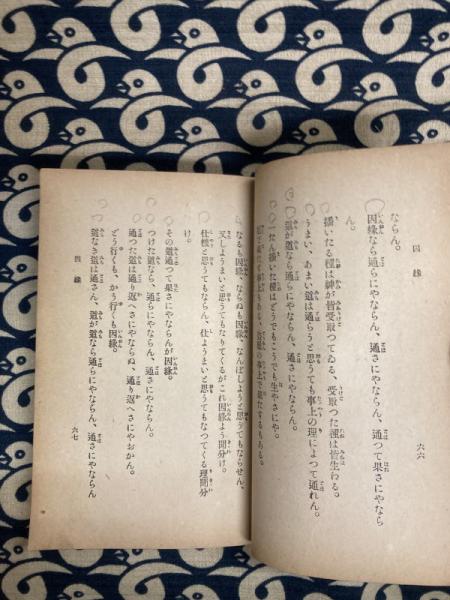 因縁
六六
ならん。
因縁なら通らにやならん、通さにやならん、通つて果さにやなら
ん。
播いたる種は神が皆受取つてゐる、受取つた種は皆生わる。
うまい、あまい道は通らうと思うても事上の理によつて通れん。
道が道なら通らにやならん、通さにやならん。
一せん播いた種はどうでもこうでも生やさにや。
なるも因縁、ならぬも因縁、なんぼしようと思うてもならせん、
又しようまいと思うてもなりてくるがこれ因縁よう聞分け。
仕様と思うてもならん、仕ようまいと思うてもなつてくる理聞分
け。
その道通つて果さにやならんが因縁。
つけた道なら、通らにやならん、通さにやならん。
通つた道は通り返へさにやならぬ、通り返へさにやおかん。
どう行くも、かう行くも因縁。
道なき道は通さん、道が道なら通らにやならん、通さにやならん
因縁
六七